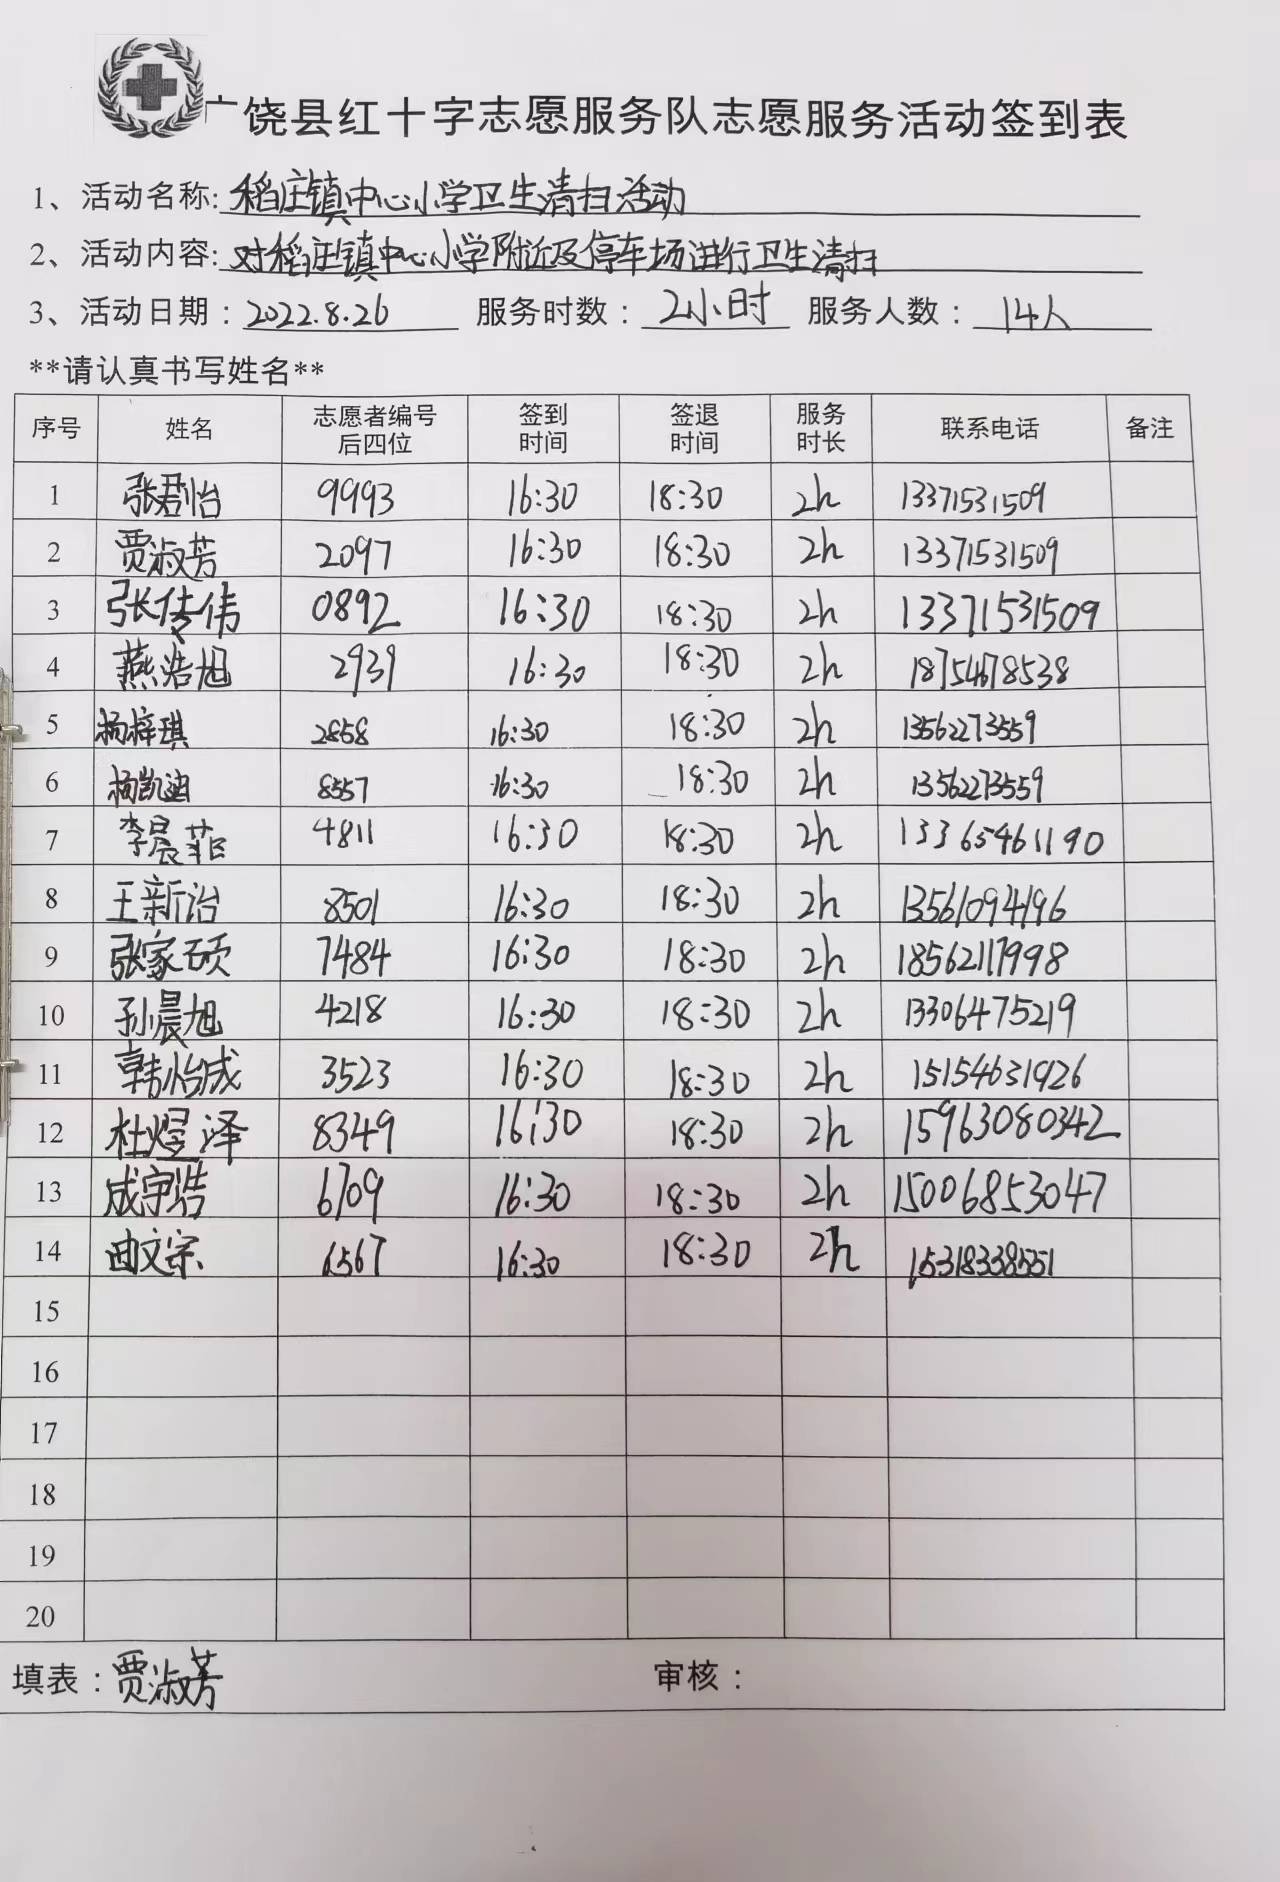 广饶县红十字志愿服务队志愿服务活动签到表
1、活动名称:稻庄镇中心小学卫生清扫活动
2、活动内容:对稻庄镇中心小学附近及停车场进行卫生清扫
3、活动日期：2022.8.26 服务时数：2小时 服务人数：14人
**请认真书写姓名**
序号 姓名 志愿者编号后四位 签到时间 签退时间 服务时长 联系电话 备注
1 张君怡 9993 16:30 18:30 2h 13371531509
2 贾淑芳 2097 16:30 18:30 2h 13371531509
3 张传伟 0892 16:30 18:30 2h 13371531509
4 燕浩旭 2939 16:30 18:30 2h 18754678538
5 杨梓琪 2858 16:30 18:30 2h 13562273559
6 杨凯迪 8557 16:30 18:30 2h 13562273559
7 李晨菲 4811 16:30 18:30 2h 13365461190
8 王新治 8501 16:30 18:30 2h 13561094196
9 张家硕 7484 16:30 18:30 2h 18562117998
10 孙晨旭 4218 16:30 18:30 2h 13306475219
11 韩怡成 3523 16:30 18:30 2h 15154631926
12 杜煜泽 8349 16:30 18:30 2h 15963080342
13 成宇浩 6709 16:30 18:30 2h 15006853047
14 曲文宗 6567 16:30 18:30 2h 15318338551
15
16
17
18
19
20
填表：贾淑芳 审核：